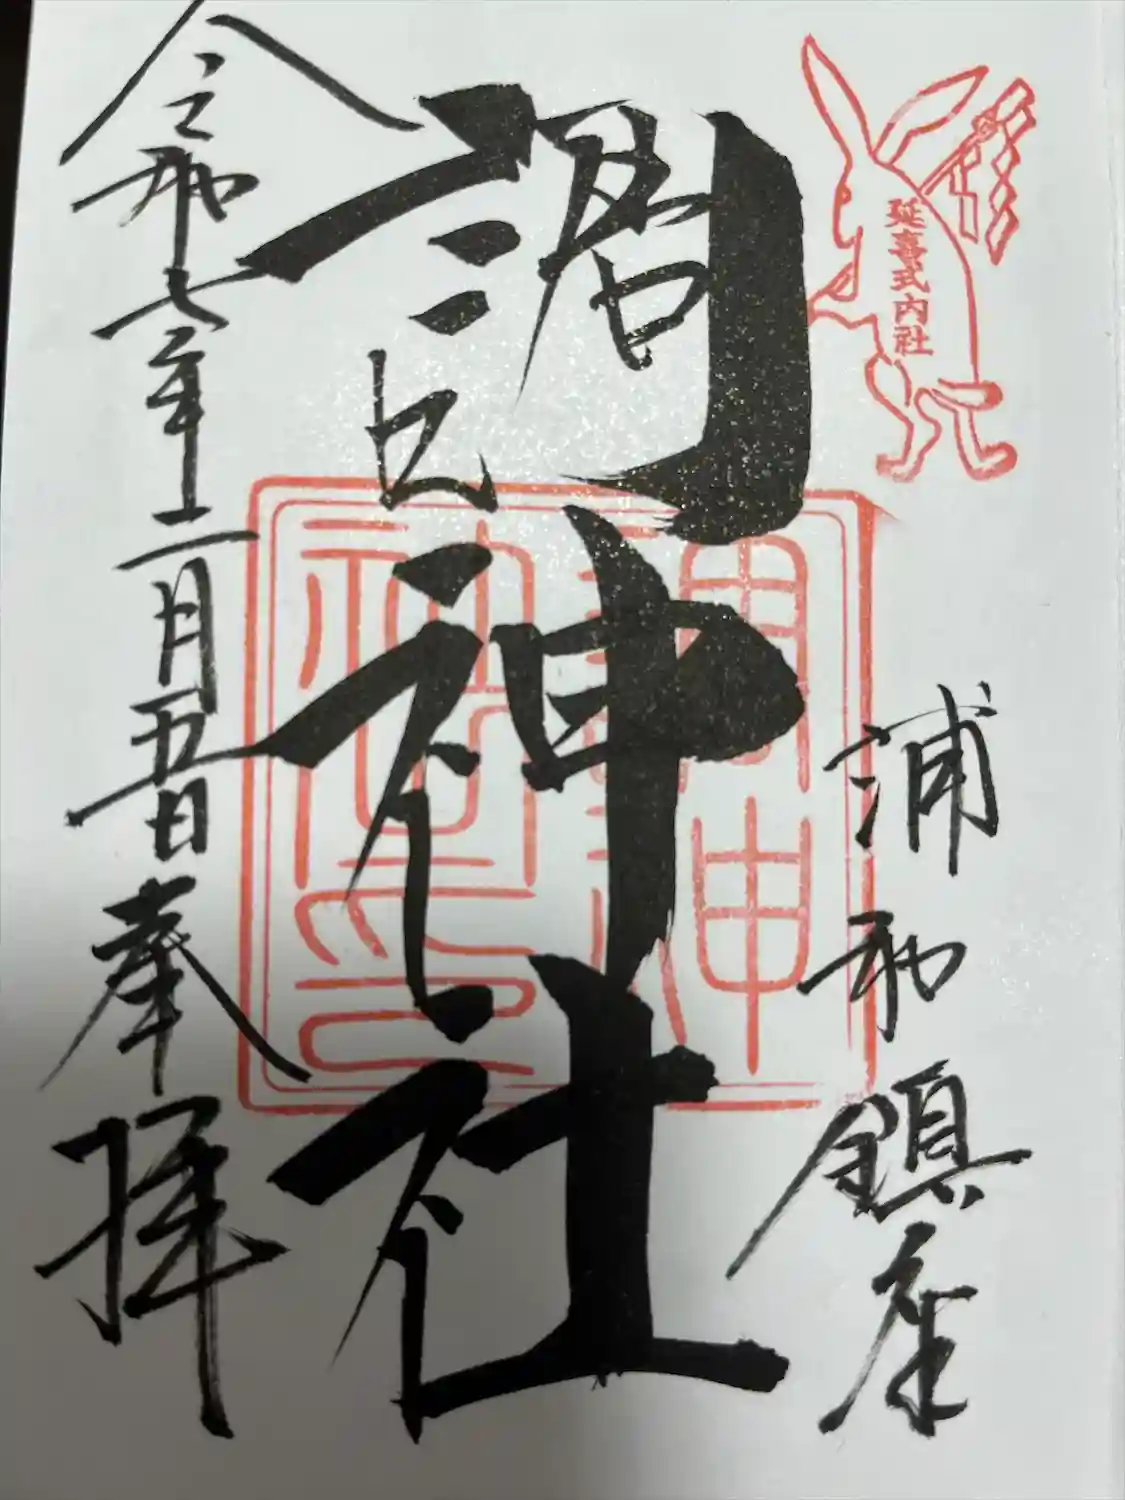 延喜式内社
浦和鎮座
調神社
調神社印
令和七年十二月五日奉拝